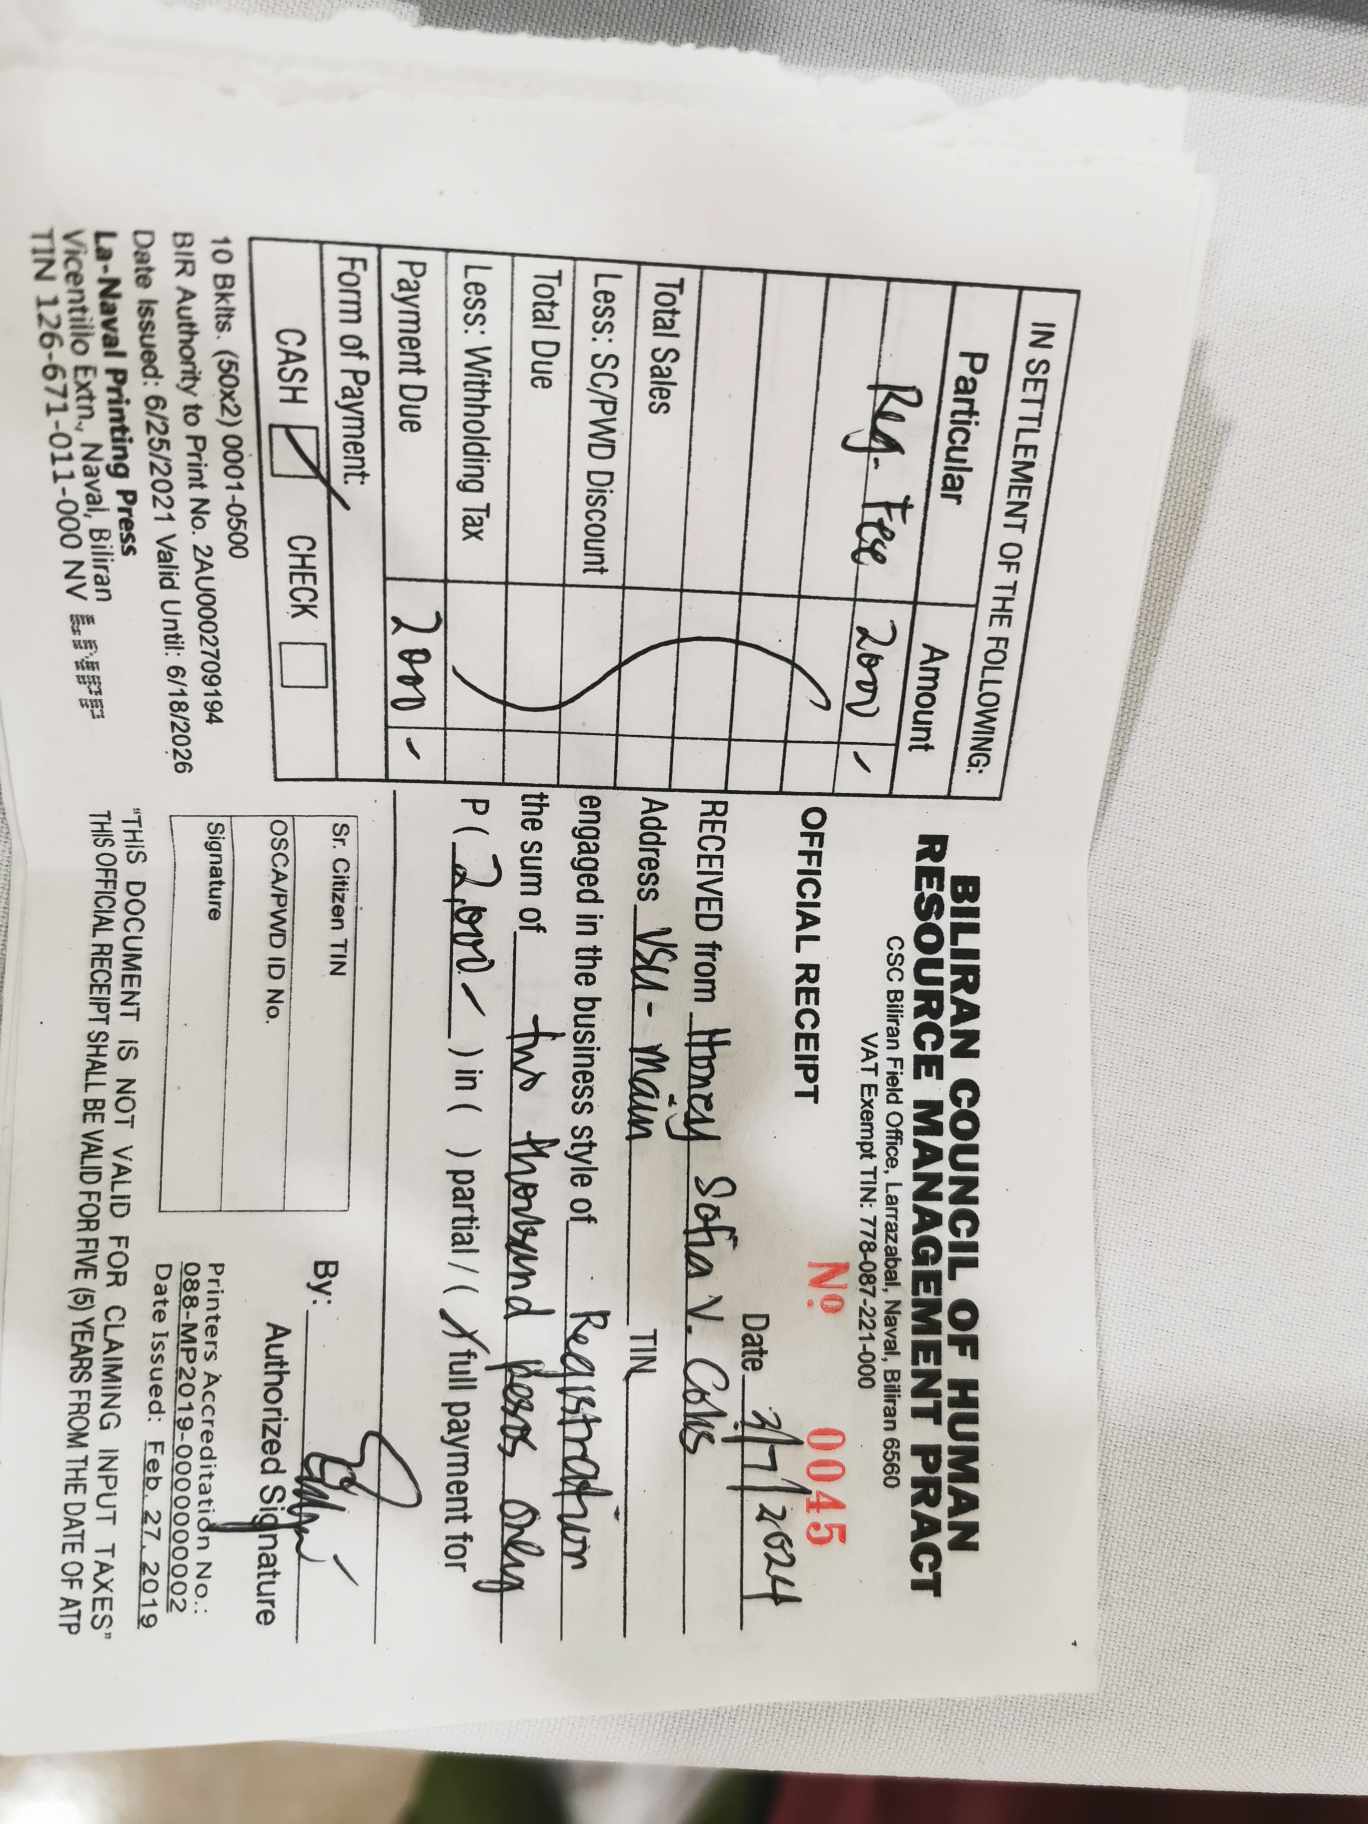 IN SETTLEMENT OF THE FOLLOWING:
Particular Amount
Reg. Fee 2000 -
Total Sales
Less: SC/PWD Discount
Total Due
Less: Withholding Tax
Payment Due 2000 -
Form of Payment:
CASH CHECK
10 Bklts. (50x2) 0001-0500
BIR Authority to Print No. 2AU0002709194
Date Issued: 6/25/2021 Valid Until: 6/18/2026
La-Naval Printing Press
Vicentillo Extn., Naval, Biliran
TIN 126-671-011-000 NV LNPP
BILIRAN COUNCIL OF HUMAN
RESOURCE MANAGEMENT PRACT
CSC Biliran Field Office, Larrazabal, Naval, Biliran 6560
VAT Exempt TIN: 778-087-221-000
OFFICIAL RECEIPT Nº 0045
Date 2/7/2024
RECEIVED from Honey Sofia V. Colis
Address VSU - Main TIN
engaged in the business style of Registration
the sum of two thousand pesos only
P ( 2,000 - ) in ( ) partial / ( / ) full payment for
By:
Authorized Signature
Sr. Citizen TIN
OSCA/PWD ID No.
Signature
Printers Accreditation No.:
088-MP2019-0000000002
Date Issued: Feb. 27, 2019
"THIS DOCUMENT IS NOT VALID FOR CLAIMING INPUT TAXES"
THIS OFFICIAL RECEIPT SHALL BE VALID FOR FIVE (5) YEARS FROM THE DATE OF ATP